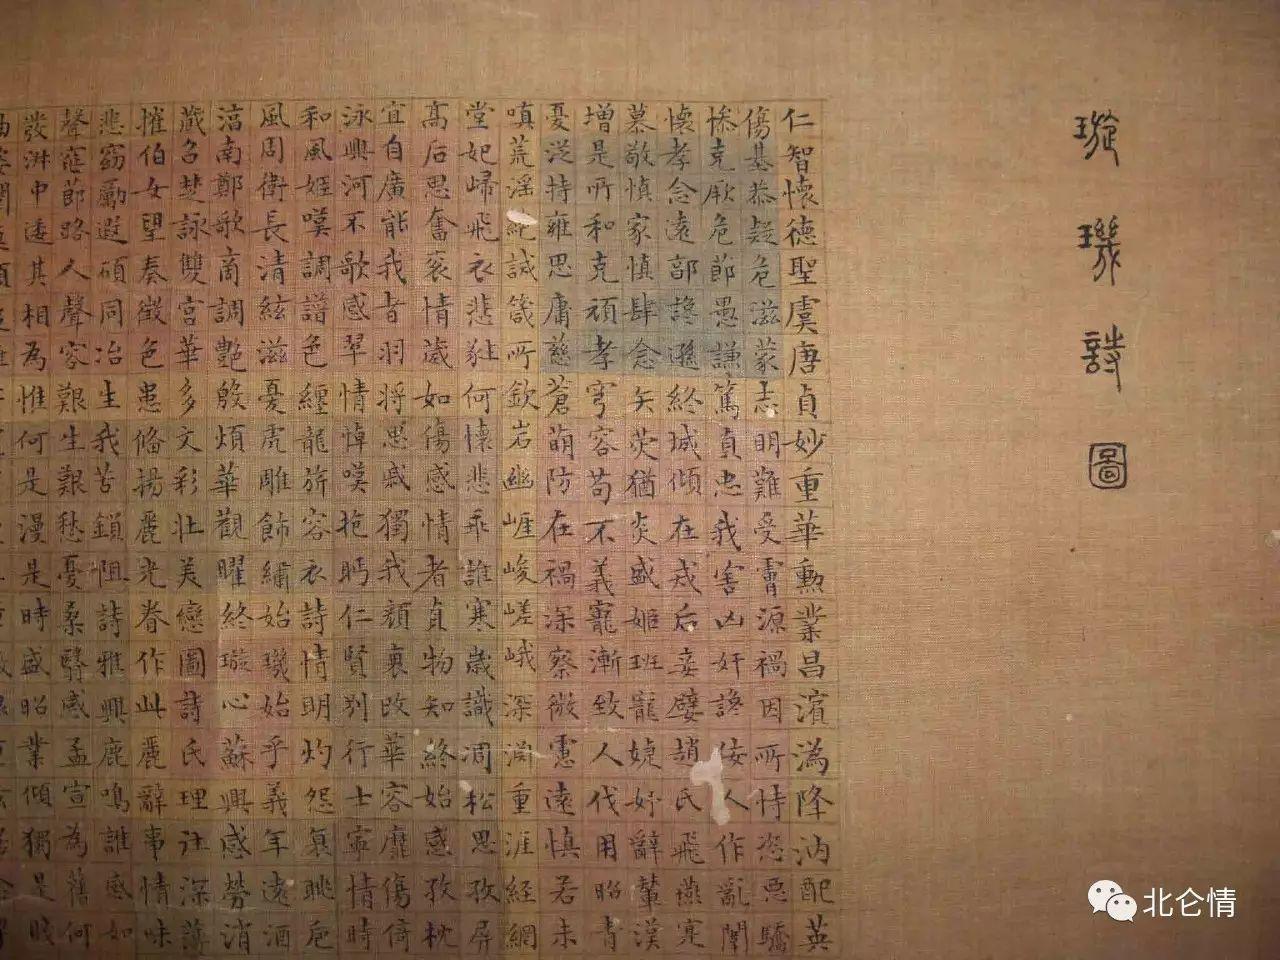 璇璣詩圖
仁智懷德聖虞唐貞妙重華勳業昌濱溈降汭配英
傷基恭疑危滋蒙志明難受霤源禍因所恃恣惡驕
慘克厥危節愚謙篤貞忠我害凶奸讒佞人作亂闈
懷孝念遠郭讒遜終城傾在戎后妾嬖趙氏飛燕寔
慕敬慎家慎肆念矢荧猶炎盛姬班寵婕妤辭輦漢
增是所和克頑孝穹容苟不義寵漸致人伐用昭青
憂泛持雍思庸慈蒼萌防在禍深察微憲遠慎若未
嗔荒淫紀誠箴所欽岩幽崕峻嵯峨深淵重涯經網
堂妃歸飛衣悲何懷悲乖誰寒歲識凋松思孜屏
高后思奮袞情葳如傷感情者貞物知終始感孜枕
宜自廣能我者羽將思戚獨我顏衰改華容靡傷倚
泳興河不歌感翠情悼嘆抱眄仁賢別行士寧情時
和風姬嘆調譜色纏龍旂容衣詩情明灼怨哀眺危
風周衛長清絃滋憂虎雕飾繡始璣始乎義年遠酒
湆南鄭歌商調艷殷煩華觀曜終璇心蘇興感勞消
藏召楚詠雙宮華多文彩壯美孌圖詩氏理注深薄
摧伯女望奏徵色患脩揚麗光眷作此麗辭事情味
悲窈勵遐碩同冶生我苦鎖阻詩雅興鹿鳴誰感如
聲窕節路人聲容艱生艱愁憂桑翳感孟宣為舊何
發淵中逶其相為惟何是漫是時盛昭業傾獨是賤
北仑情